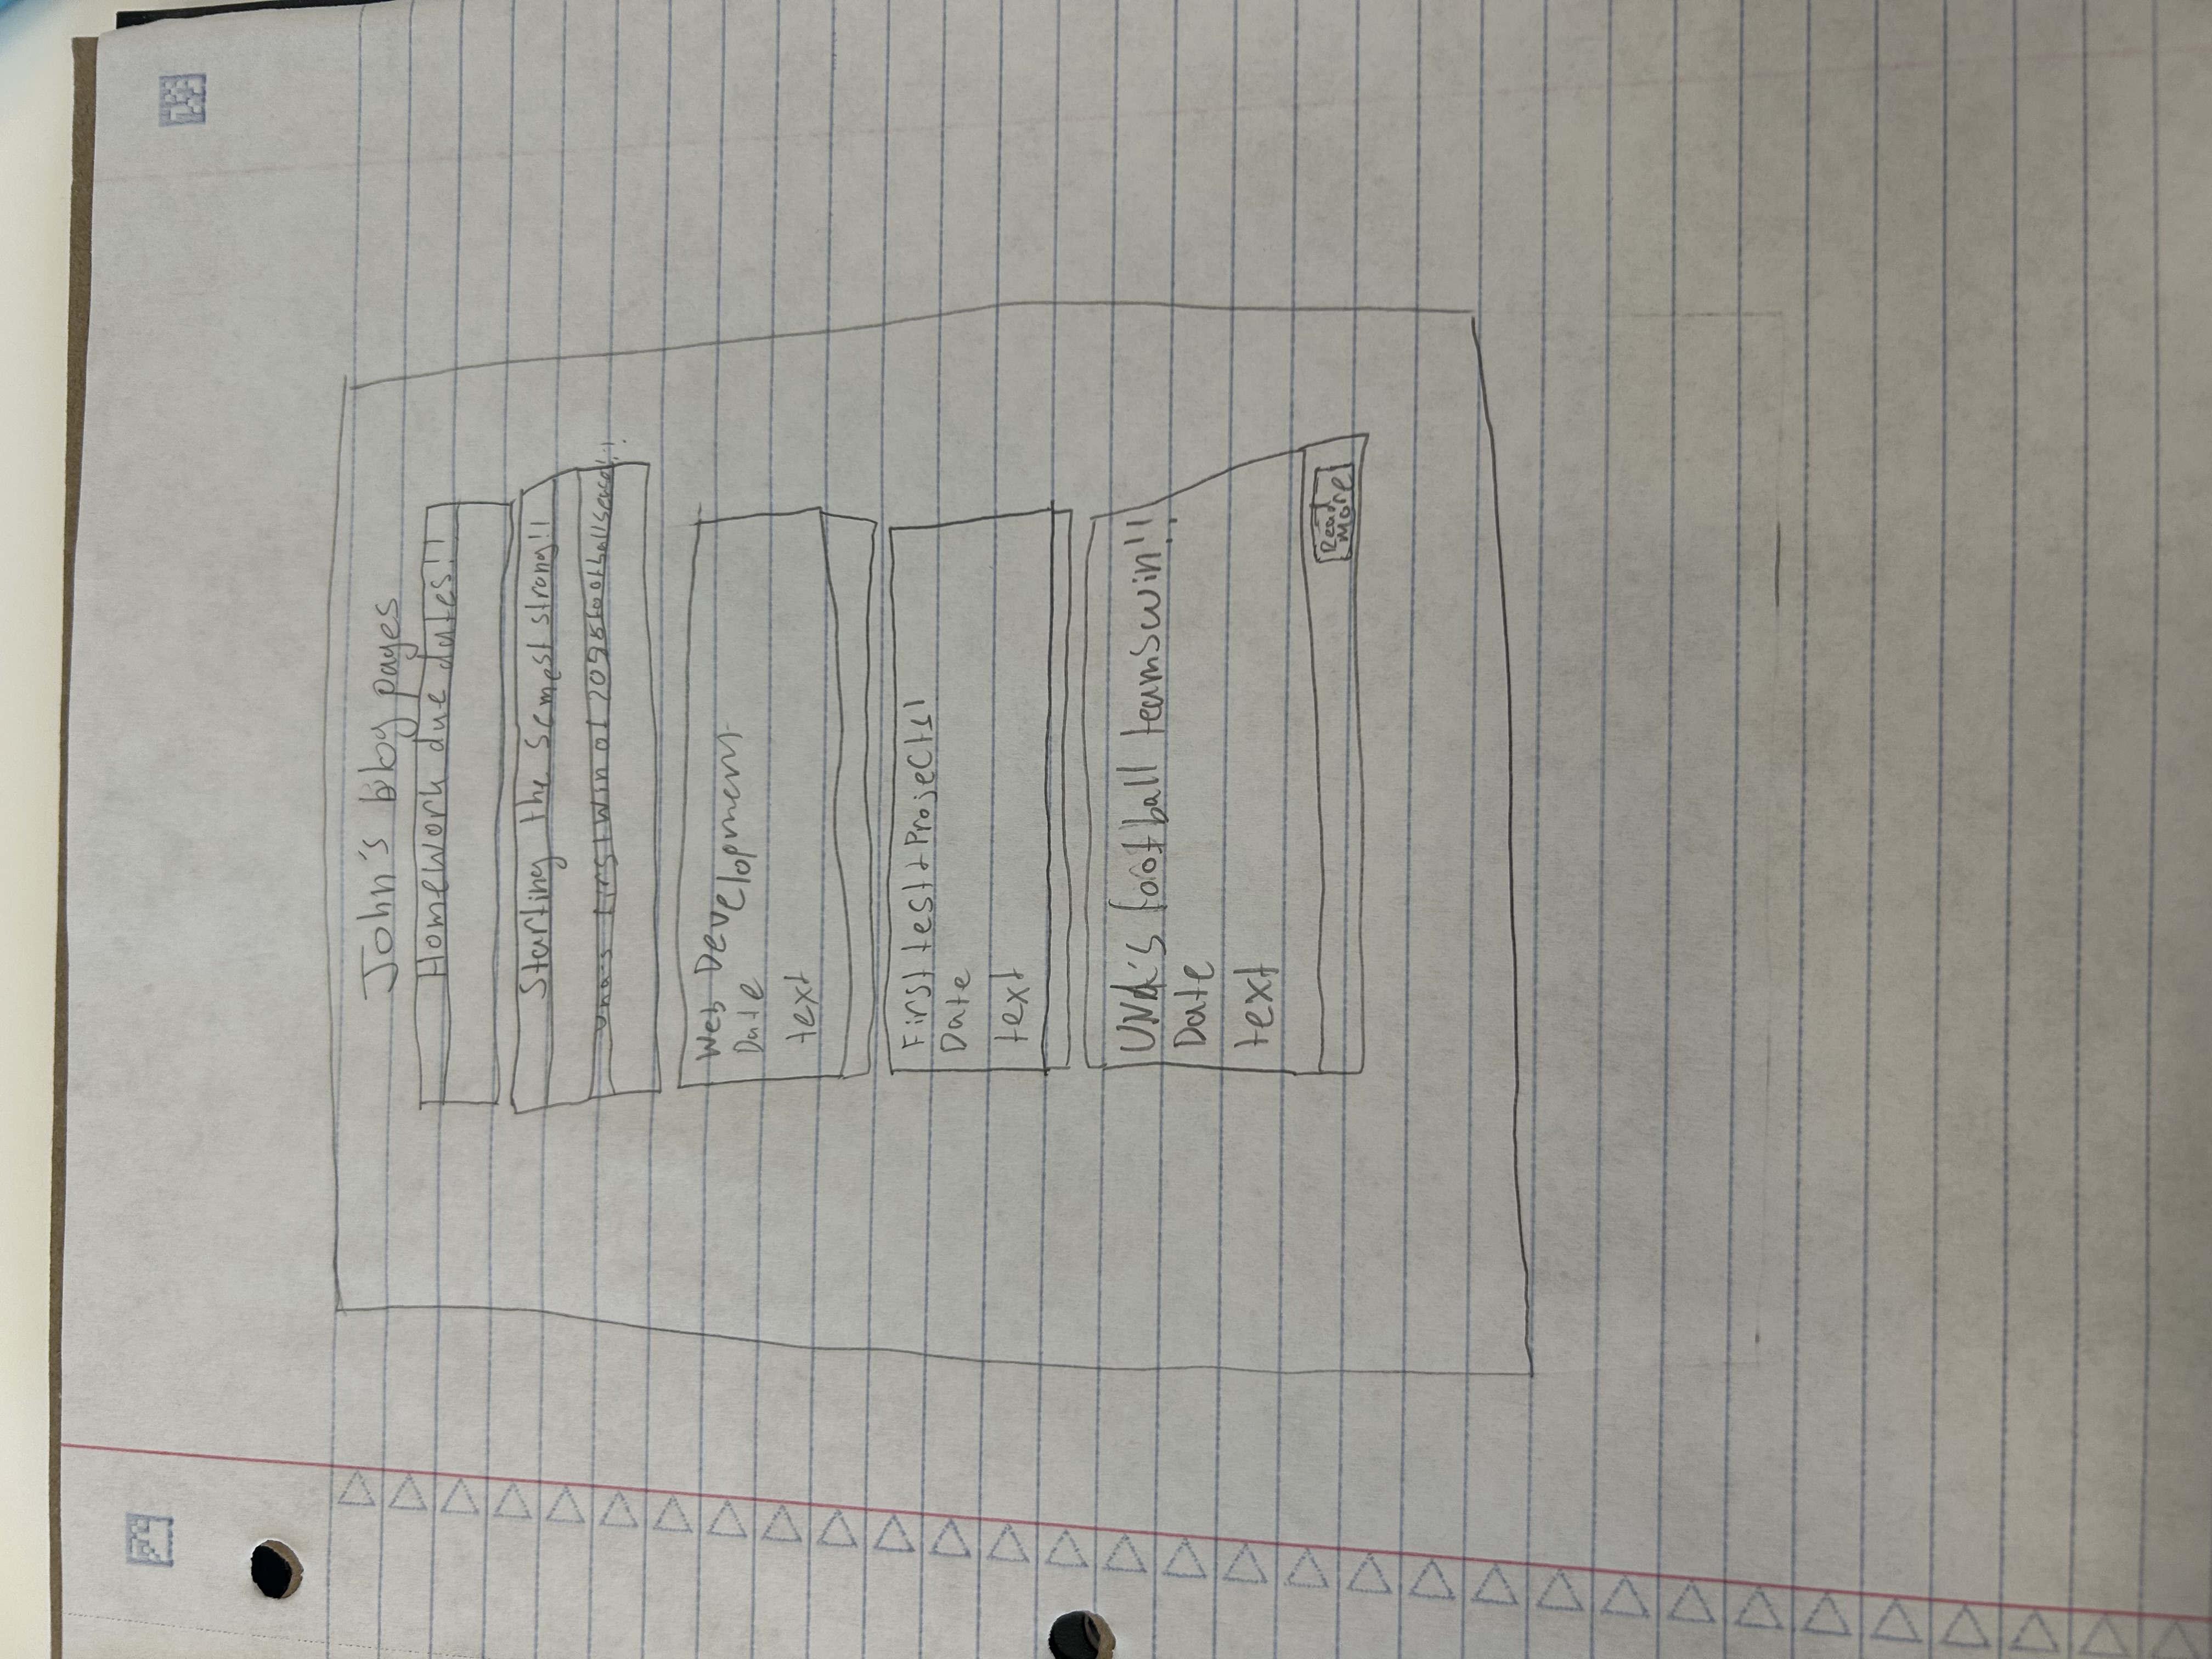 John's blog pages
Homework due dates!!
Starting the Semest strong!!
Una's first win of 2025 football season!!
Web Development
Date
text
First test & Projects!
Date
text
UNA's football teams win!!
Date
text
Read
More